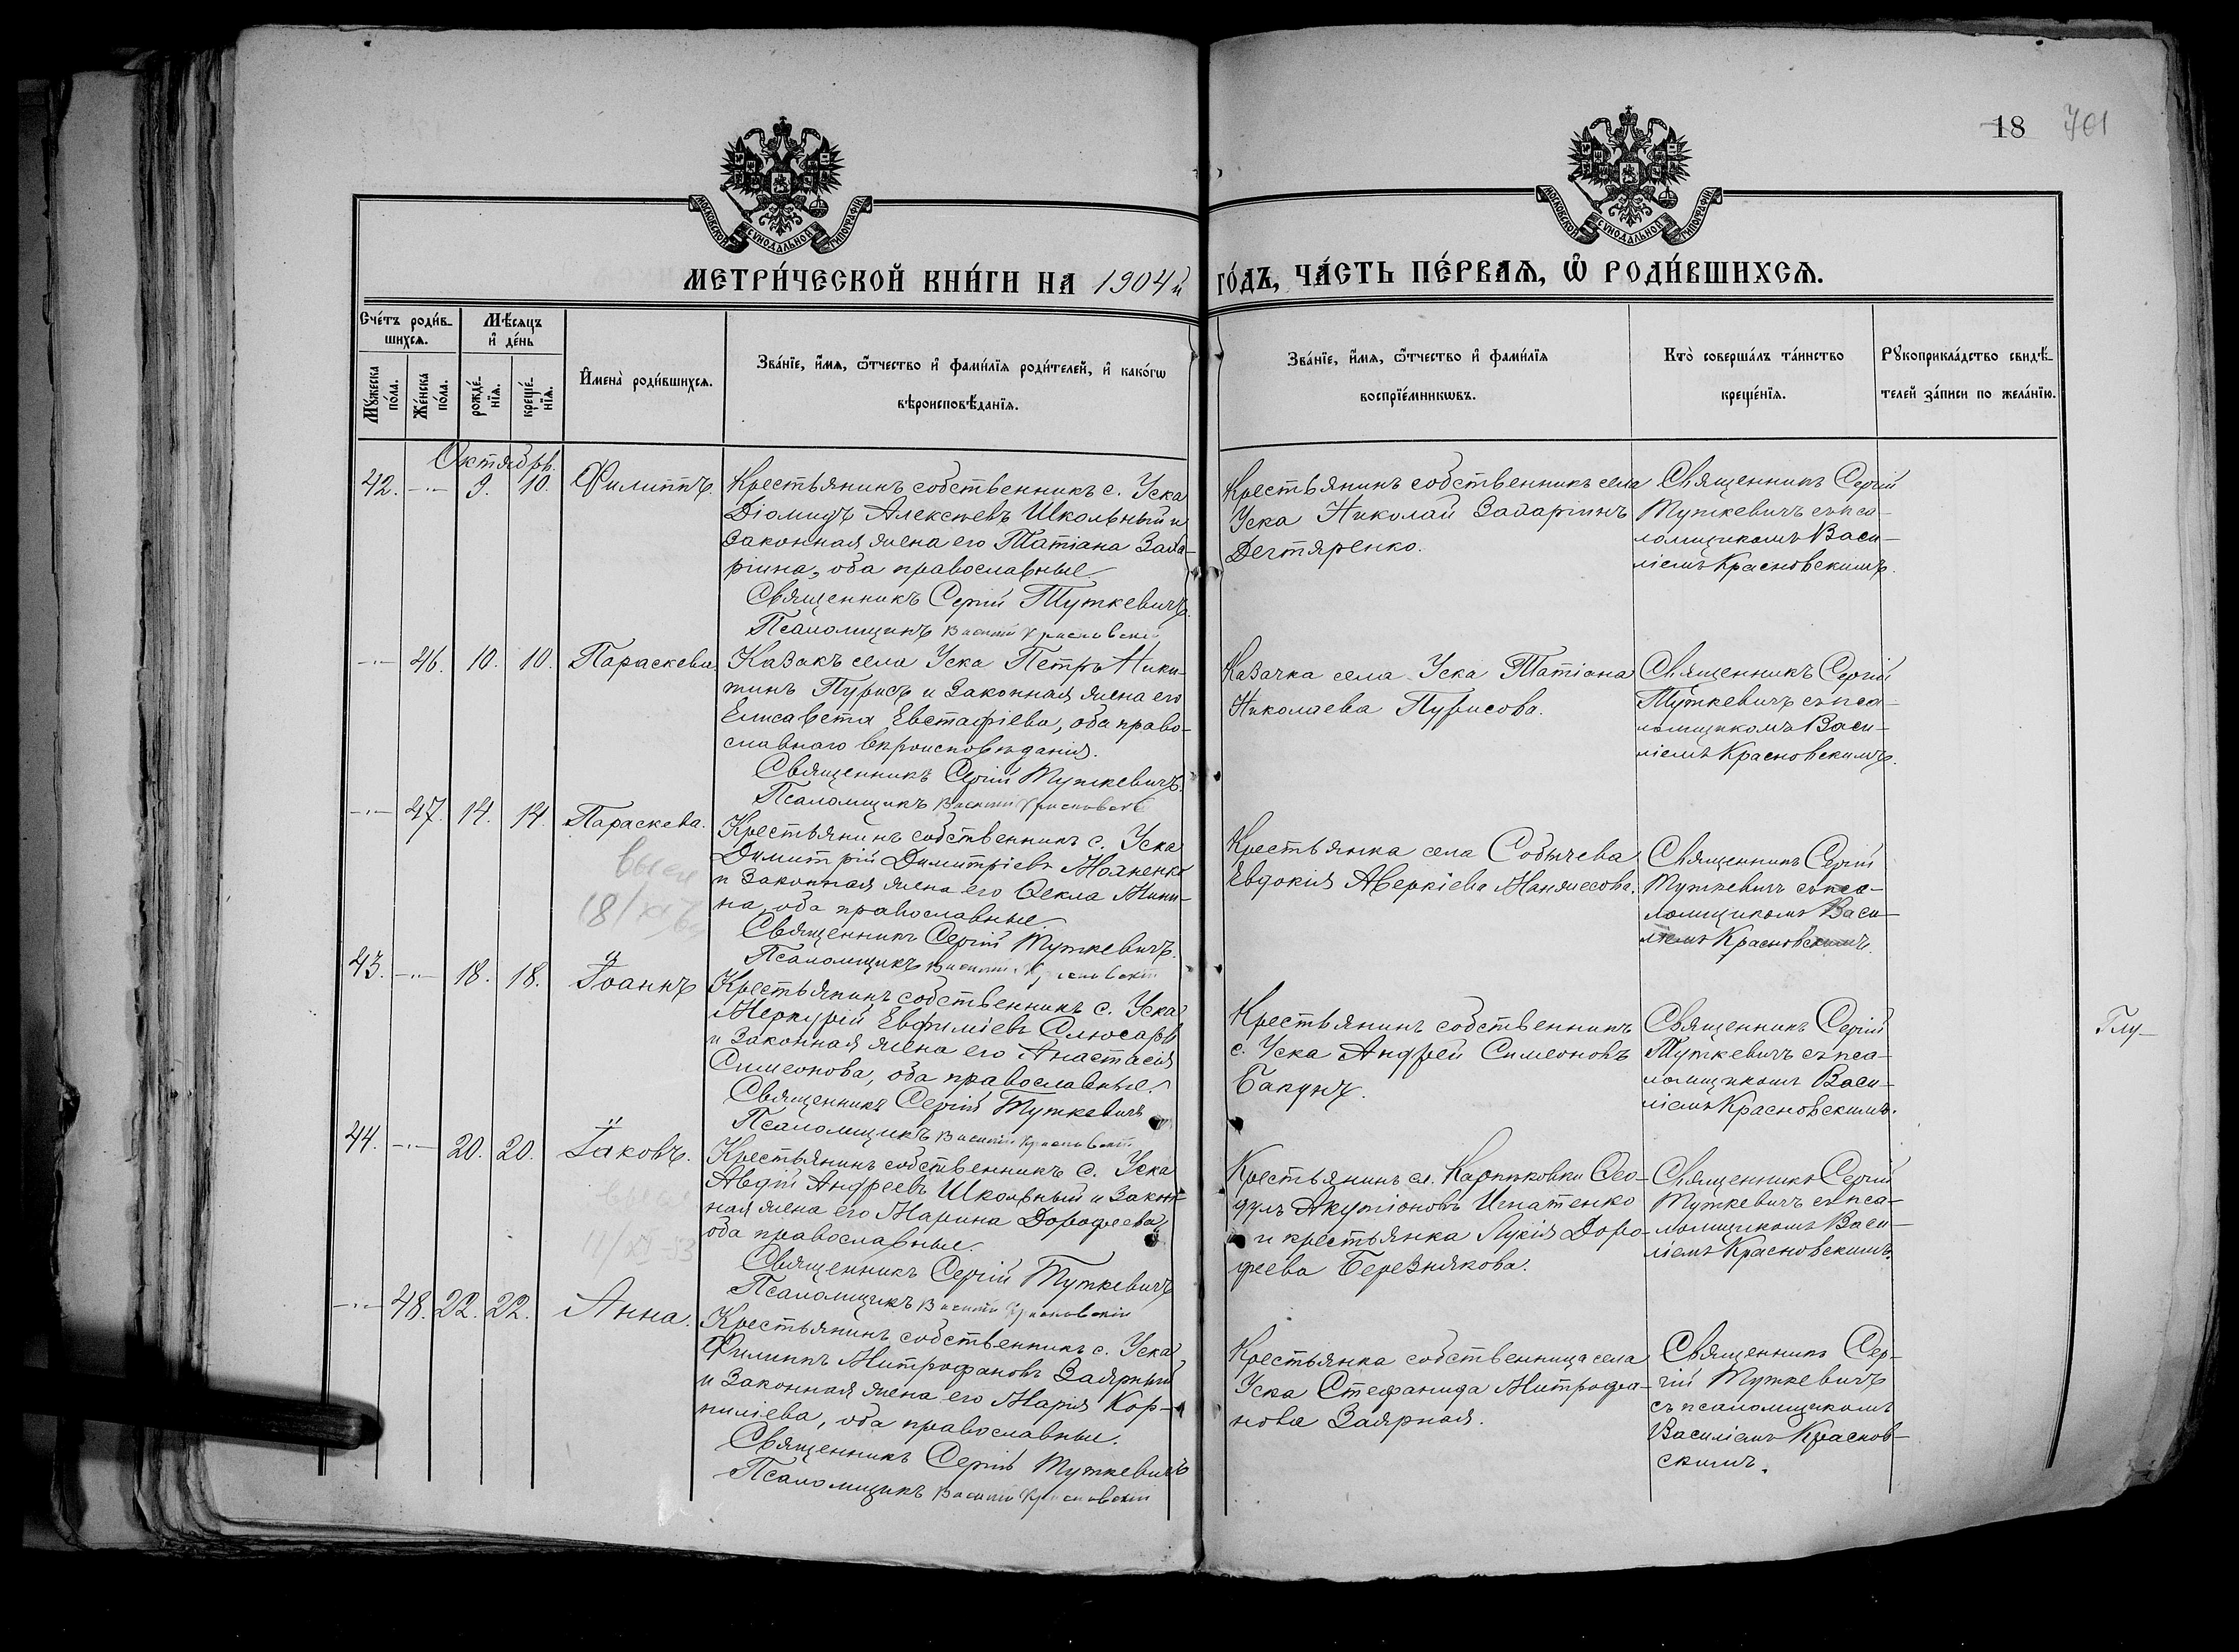 18 701
МОСКОВСКОЙ СѴНОДАЛЬНОЙ ТИПОГРАФІИ
МОСКОВСКОЙ СѴНОДАЛЬНОЙ ТИПОГРАФІИ
МЕТРИ́ЧЕСКОЙ КНИ́ГИ НА 1904й ГО́ДЪ, ЧА́СТЬ ПЕ́РВАѦ, Ѡ҆ РОДИ́ВШИХСѦ.
Сче́тъ роди́в-
шихсѧ.
Мꙋ́жеска
по́ла.
Же́нска
по́ла.
Мѣ́сѧцъ
и҆ де́нь
рожде́-
нїѧ.
креще́-
нїѧ.
И҆мена̀ роди́вшихсѧ.
Зва́нїе, и҆́мѧ, ѻ҆́тчество и҆ фами́лїѧ роди́телей, и҆ како́гѡ
вѣроисповѣ́данїѧ.
Зва́нїе, и҆́мѧ, ѻ҆́тчество и҆ фами́лїѧ
воспрїе́мникѡвъ.
Кто̀ соверша́лъ та́инство
креще́нїѧ.
Рꙋкоприкла́дство свидѣ́-
телей за́писи по жела́нїю.
Октябрь.
42. -"- 9. 10. Филиппъ.
Крестьянинъ собственникъ с. Уска
Діомидъ Алексѣевъ Школьный и
законная жена его Татіана Заха-
ріина, оба православные.
Священникъ Сергій Туткевичъ.
Псаломщикъ Василій Красновскій
Крестьянинъ собственникъ села
Уска Николай Захаріинъ
Дегтяренко.
Священникъ Сергій
Туткевичъ съ пса-
ломщикомъ Васи-
ліемъ Красновскимъ.
-"- 46. 10. 10. Параскева
Казакъ села Уска Петръ Ники-
тинъ Пурисъ и законная жена его
Елисавета Евстафіева, оба право-
славнаго вѣроисповѣданія.
Священникъ Сергій Туткевичъ.
Псаломщикъ Василій Красновскій
Казачка села Уска Татіана
Николаева Пурисова.
Священникъ Сергій
Туткевичъ съ пса-
ломщикомъ Васи-
ліемъ Красновскимъ.
-"- 47. 14. 14. Параскева.
Крестьянинъ собственникъ с. Уска
Димитрій Димитріевъ
и законная жена его Ѳекла Мини-
на, оба православные.
Священникъ Сергій Туткевичъ.
Псаломщикъ Василій Красновскій
Крестьянка села Собычева
Евдокія Аверкіева Манжесова.
Священникъ Сергій
Туткевичъ съ пса-
ломщикомъ Васи-
ліемъ Красновскимъ.
43. -"- 18. 18. Іоаннъ
Крестьянинъ собственникъ с. Уска
Меркурій Евфиміевъ Слюсарь
и законная жена его Анастасія
Симеонова, оба православные.
Священникъ Сергій Туткевичъ
Псаломщикъ Василій Красновскій
Крестьянинъ собственникъ
с. Уска Андрей Симеоновъ
Бакунъ.
Священникъ Сергій
Туткевичъ съ пса-
ломщикомъ Васи-
ліемъ Красновскимъ.
Глу-
44. -"- 20. 20. Іаковъ.
Крестьянинъ собственникъ с. Уска
Авдій Андреевъ Школьный и закон-
ная жена его Марина Дорофеева,
оба православные.
Священникъ Сергій Туткевичъ
Псаломщикъ Василій Красновскій
Крестьянинъ сл. Ѳео-
дулъ Игнатенко
и крестьянка Лукія Доро-
феева Березнякова.
Священникъ Сергій
Туткевичъ съ пса-
ломщикомъ Васи-
ліемъ Красновскимъ.
-"- 48. 22. 22. Анна.
Крестьянинъ собственникъ с. Уска
Филиппъ Митрофановъ Заярный
и законная жена его Марія Кор-
ниліева, оба православные.
Священникъ Сергій Туткевичъ
Псаломщикъ Василій Красновскій
Крестьянка собственница села
Уска Стефанида Митрофа-
нова Заярная.
Священникъ Сер-
гій Туткевичъ
съ псаломщикомъ
Василіемъ Краснов-
скимъ.